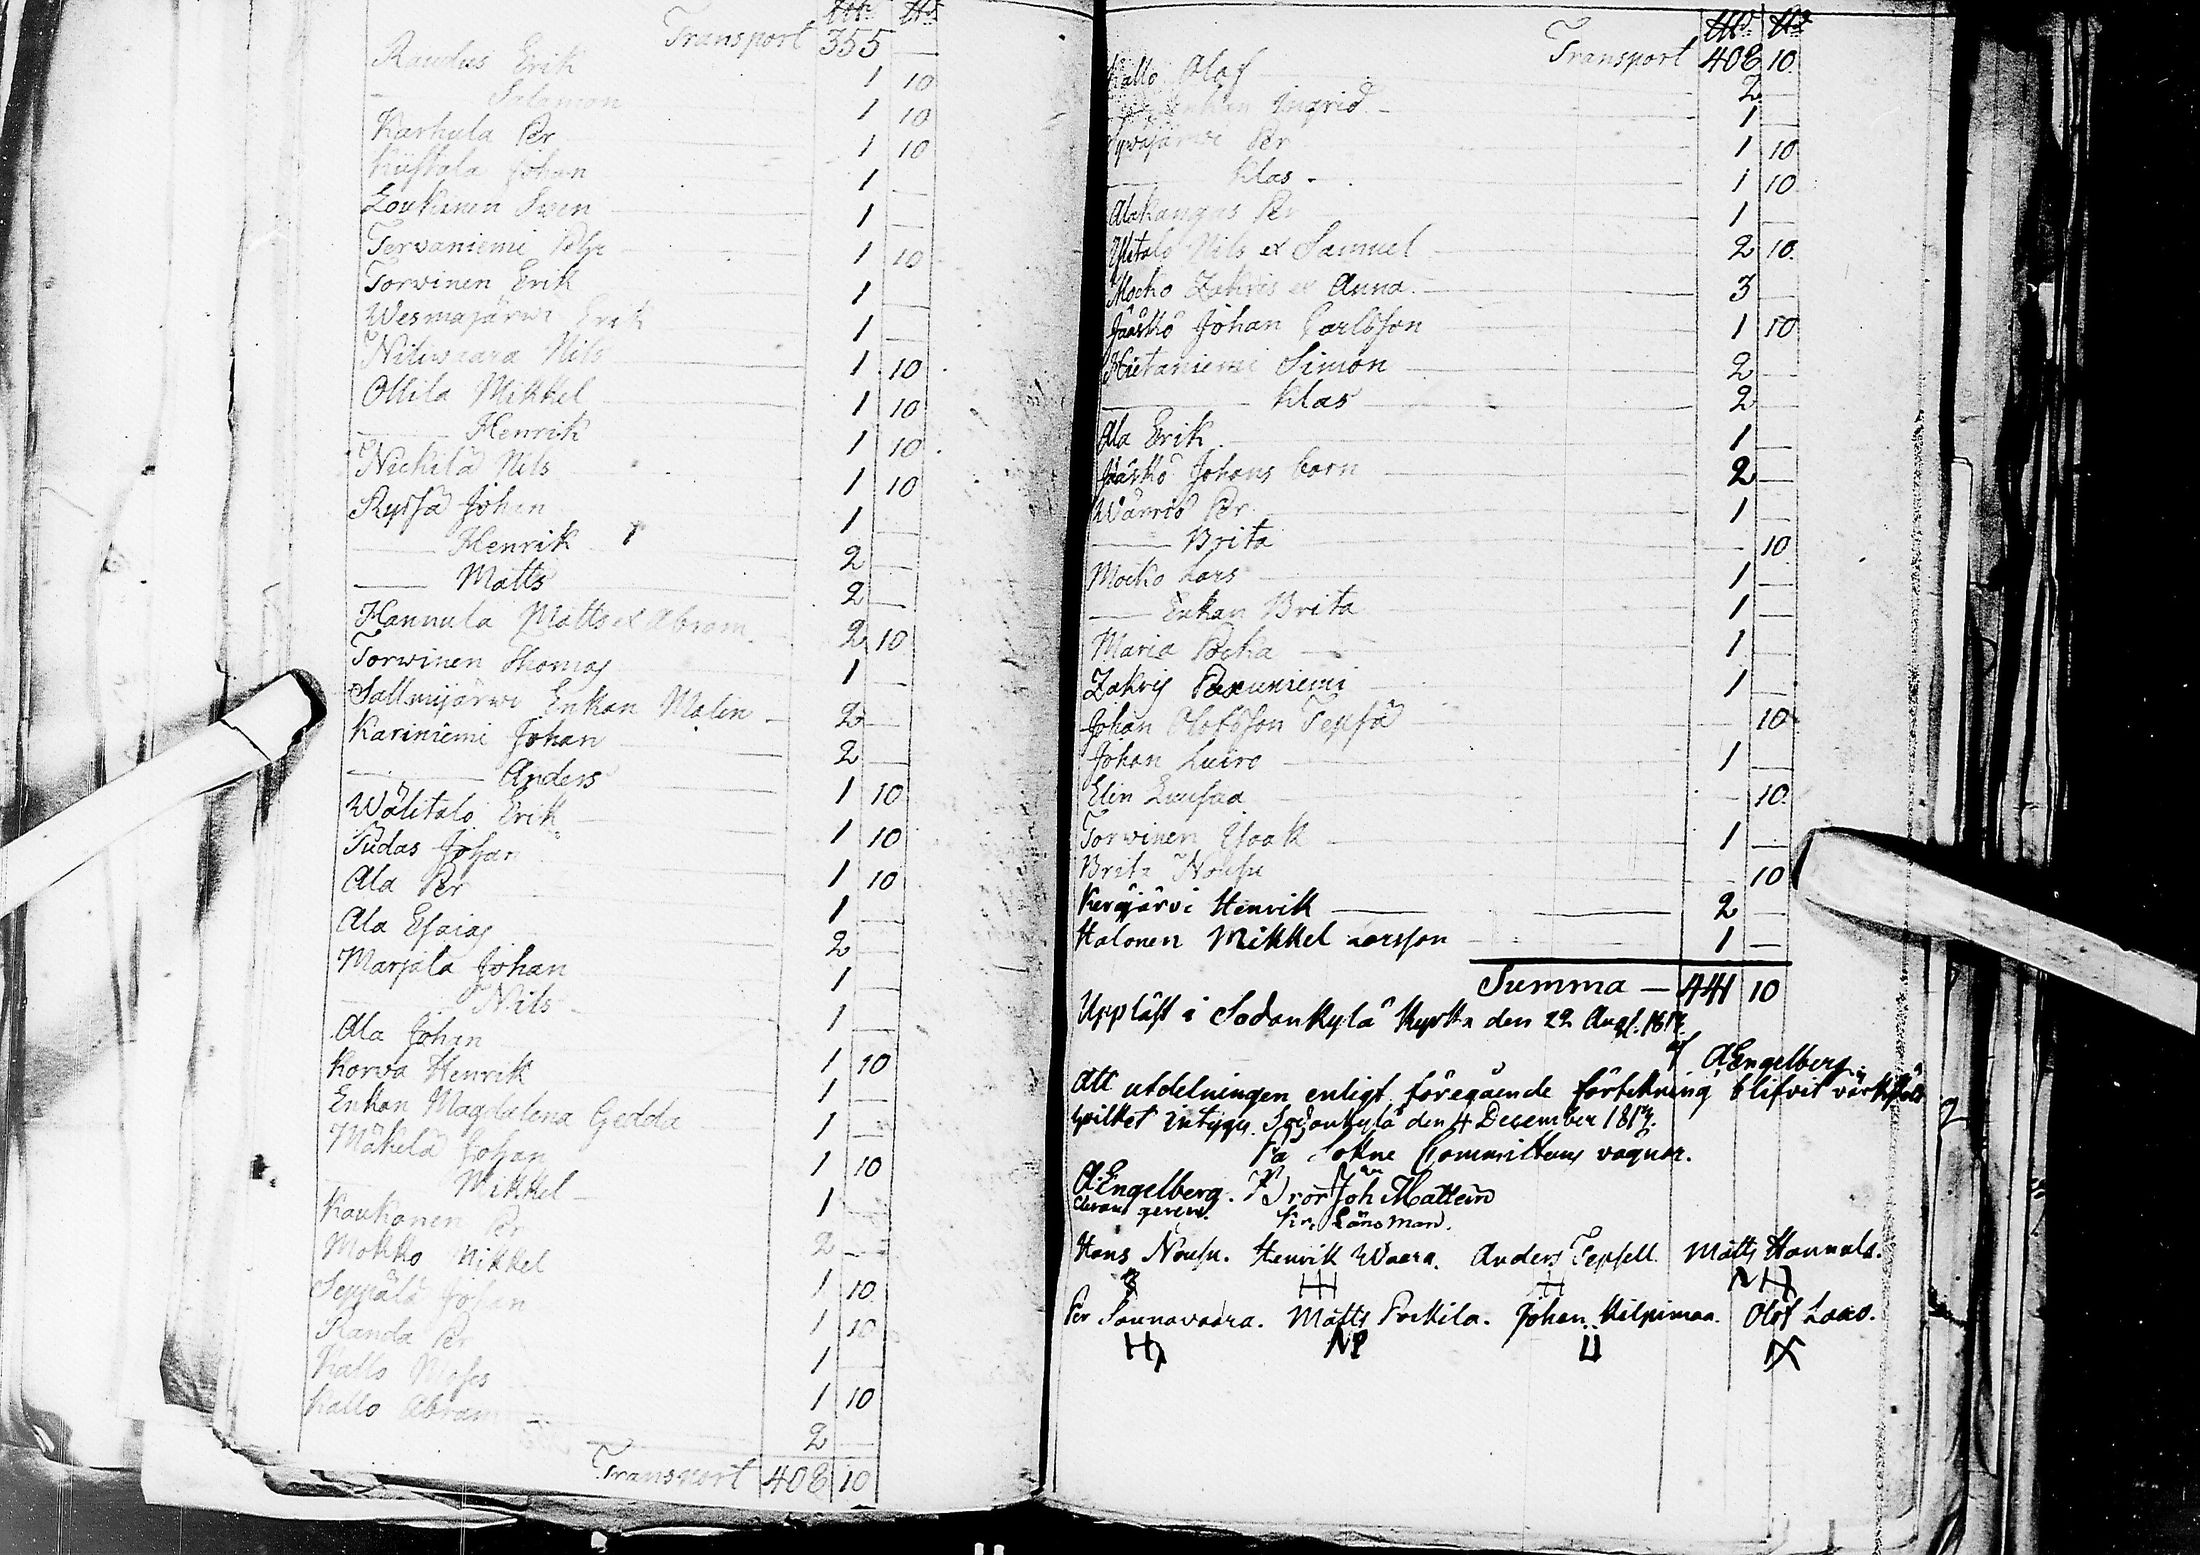 Transport 355 —
Randus Erik 1 10
— Salomon 1 10
Karhula Per 1 10
Johan 1 —
Loukinen Swen 1 —
Tervaniemi 1 10
Torvinen Erik 1 —
Wesmajärwi Erik 1 —
Nilivaara Nils 1 10
Ollila Mikkel 1 10
— Henrik 1 10
Neckilä Nils 1 10
Ryssä Johan 1 —
— Henrik 2 —
— Matts 2 —
Hannula Matts et Abram 2 10
Torwinen Thomas 1 —
Sallmijärwi Enkan Malin 2 —
Kariniemi Johan 2 —
— Anders 1 10
Wälitalo Erik 1 10
Pudas Johan 1 10
Ala Per 1 —
Ala Esaias 2 —
Marjala Johan 1 —
— Nils 1 —
Ala Johan 1 10
Korwa Henrik 1 —
Enkan Magdalena Gedda 1 —
Mäkelä Johan 1 10
— Mikkel 1 —
Koukonen Per 2 —
Mokko Mikkel 1 10
Seppälä Johan 1 10
Randa Per 1 —
Kallo Moses 1 10
Kallo Abram 2 —
Transport 408 10
Transport 408 10
Kallo Olof 2 —
Enkan Ingrid 1 —
Syväjärwi Per 1 10
— Klas 1 10
Alakangas Per 1 —
Ylitalo Nils et Samuel 2 10
Mocko Zakris et Anna 3 —
Jääskö Johan Carlsson 1 10
Hietaniemi Simon 2 —
— Klas 2 —
Ala Erik 1 —
Jääskö Johans barn 2 —
Wärriö Per 1 —
— Brita — 10
Mocko Lars 1 —
— Enkan Brita 1 —
Maria Pocka 1 —
Zakris Paxuniemi 1 —
Johan Olofsson Tepsä — 10
Johan Luiro 1 —
Elin — 10
Torwinen Isaak 1 —
Brita Nousu — 10
Kerojärvi Henrik 2 —
Halonen Mikkel Larsson 1 —
Summa — 441 10
Uppläst i Sodankylä Kyrka den 22 Aug. 1817.
af A. Engelberg.
Att utdelningen enligt föregående förtekning blifvit värkstäld
hvilket intygas. Sodankylä den 4 December 1817.
På Sokne Committens vägnar.
A. Engelberg. Bror Joh Mattein
Länsman.
Hans Nousu. Henrik Waara. Anders Tepsell. Matts Hannula.
Per Saunavaara. Matts Pockila. Johan Kilpimaa. Olof Laao.